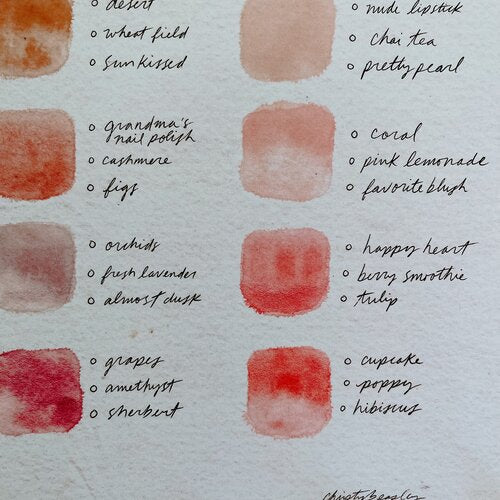 desert
wheat field
sunkissed
grandma's
nail polish
cashmere
figs
orchids
fresh lavender
almost dusk
grapes
amethyst
sherbert
nude lipstick
chai tea
pretty pearl
coral
pink lemonade
favorite blush
happy heart
berry smoothie
tulip
cupcake
poppy
hibiscus